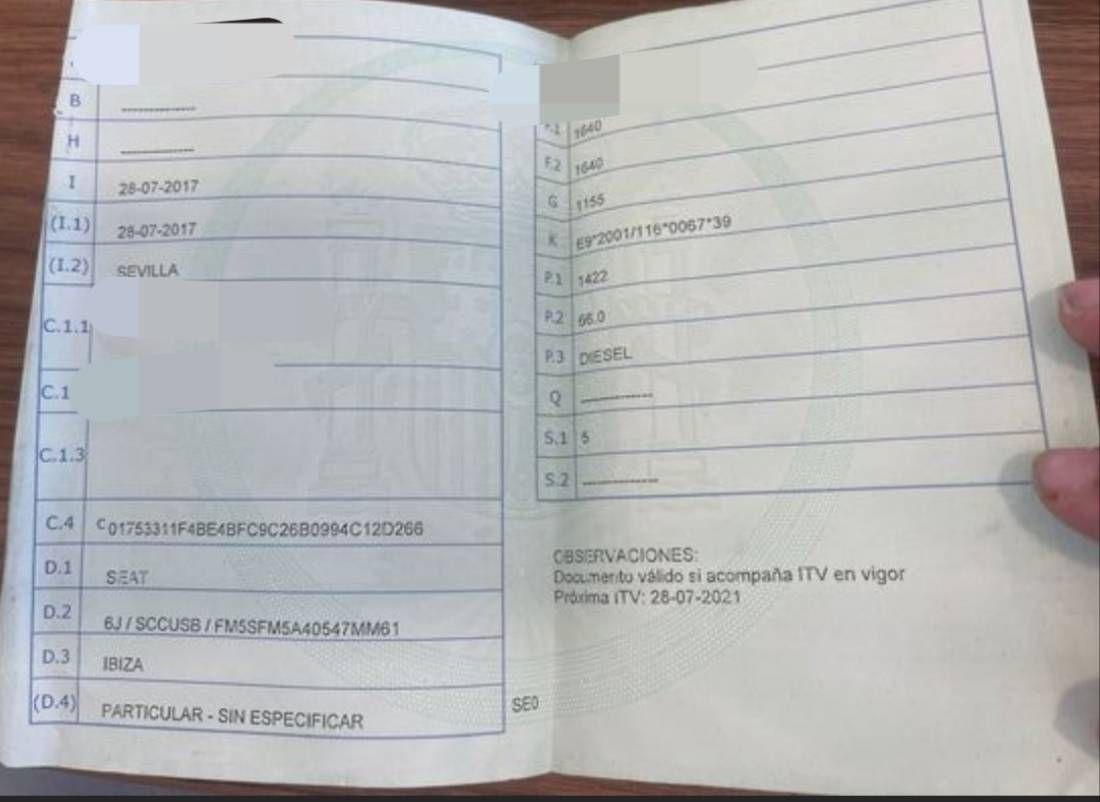 B -------------
H -------------
I 28-07-2017
(I.1) 28-07-2017
(I.2) SEVILLA
C.1.1
C.1
C.1.3
C.4 C01753311F4BE4BFC9C26B0994C12D266
D.1 SEAT
D.2 6J / SCCUSB / FM5SFM5A40547MM61
D.3 IBIZA
(D.4) PARTICULAR - SIN ESPECIFICAR
SE0
F.1 1640
F.2 1640
G 1155
K E9*2001/116*0067*39
P.1 1422
P.2 66.0
P.3 DIESEL
Q -------------
S.1 5
S.2 -------------
OBSERVACIONES:
Documento válido si acompaña ITV en vigor
Próxima ITV: 28-07-2021